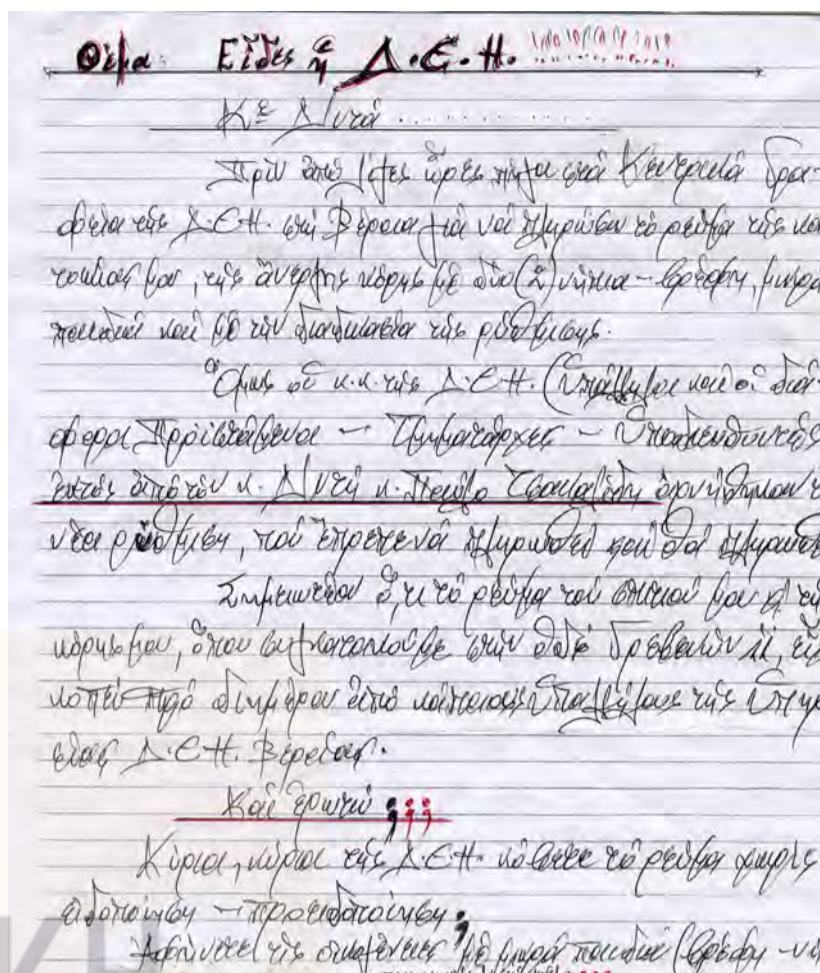 Θέμα: Εἶδες ἡ Δ.Ε.Η.
Κε Δ/ντά ............
Πρίν ἀπό λίγες ὧρες πῆγα στά Κεντρικά Γρα-
φεῖα τῆς Δ.Ε.Η. στή Βέροια γιά νά πληρώσω τό ρεῦμα τῆς κα
τοικίας μου, τῆς ἄνεργης κόρης μέ δύο (2) νήπια – βρέφη, μικρά
παιδιά καί μέ τήν διαδικασία τῆς ρύθμισης.
Ὅμως οἱ κ.κ. τῆς Δ.Ε.Η. (Ὑπάλληλοι καί οἱ διά-
φοροι Προϊστάμενοι – Τμηματάρχες – Ὑποδιευθυντές
ἐκτός ἀπό τόν κ. Δ/ντή κ. ἀρνήθηκαν τ
νέα ρύθμιση, πού ἔπρεπε νά πληρωθεῖ καί θά πληρωθε
Σημειωτέον ὅ,τι τό ρεῦμα τοῦ σπιτιοῦ μου κ τῆ
κόρης μου, ὅπου συγκατοικοῦμε στήν ὁδό Γρεβενῶν εἶ
κοπεῖ πρό διημέρου ἀπό κάποιους Ὑπαλλήλους τῆς Ὑπηρ
εσίας Δ.Ε.Η. Βεροίας.
Καί ἐρωτῶ ;;;
Κύριοι, κύριοι τῆς Δ.Ε.Η. κόβετε τό ρεῦμα χωρίς
εἰδοποίηση – προειδοποίηση;
Ἀφήνετε τίς οἰκογένειες μέ μικρά παιδιά (βρέφη – νή